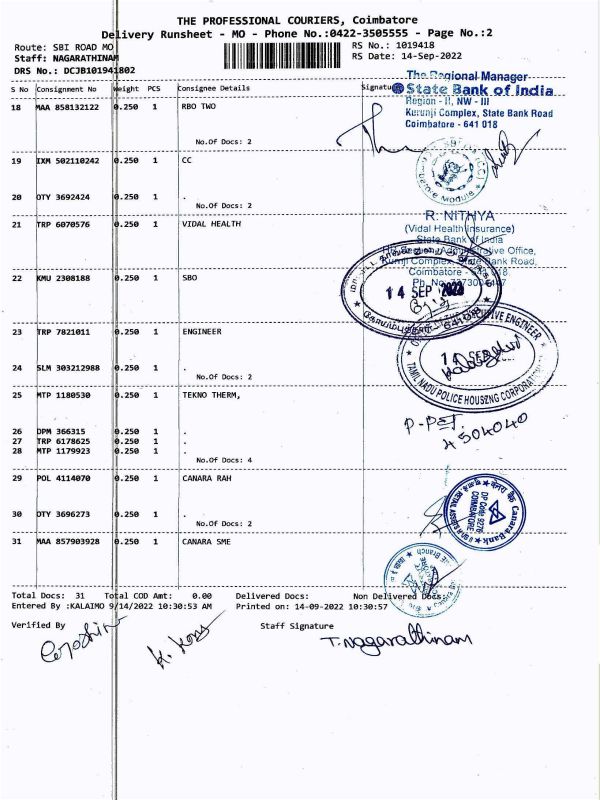 THE PROFESSIONAL COURIERS, Coimbatore
Delivery Runsheet - MO - Phone No.:0422-3505555 - Page No.:2
Route: SBI ROAD MO
RS No.: 1019418
Staff: NAGARATHINAM
RS Date: 14-Sep-2022
DRS No.: DCJB101941802
S No Consignment No Weight PCS Consignee Details Signature
The Regional Manager
State Bank of India
Region - II, NW - III
Kurunji Complex, State Bank Road
Coimbatore - 641 018
18 MAA 858132122 0.250 1 RBO TWO
No.Of Docs: 2
19 IXM 502110242 0.250 1 CC
20 OTY 3692424 0.250 1 .
No.Of Docs: 2
21 TRP 6070576 0.250 1 VIDAL HEALTH
R. NITHYA
(Vidal Health Insurance)
State Bank of India
Administrative Office,
Kurinji Complex, State Bank Road,
Coimbatore
22 KMU 2308188 0.250 1 SBO
14 SEP 2022
23 TRP 7821011 0.250 1 ENGINEER
EXECUTIVE ENGINEER
TAMIL NADU POLICE HOUSING CORPORATION
24 SLM 303212988 0.250 1 .
No.Of Docs: 2
25 MTP 1180530 0.250 1 TEKNO THERM,
26 DPM 366315 0.250 1 .
27 TRP 6178625 0.250 1 .
28 MTP 1179923 0.250 1 .
No.Of Docs: 4
4504040
29 POL 4114070 0.250 1 CANARA RAH
Canara Bank
DP Code 9276
COIMBATORE
30 OTY 3696273 0.250 1 .
No.Of Docs: 2
31 MAA 857903928 0.250 1 CANARA SME
Total Docs: 31 Total COD Amt: 0.00 Delivered Docs: Non Delivered Docs:
Entered By :KALAIMO 9/14/2022 10:30:53 AM Printed on: 14-09-2022 10:30:57
Verified By
Staff Signature
T. Nagarathinam